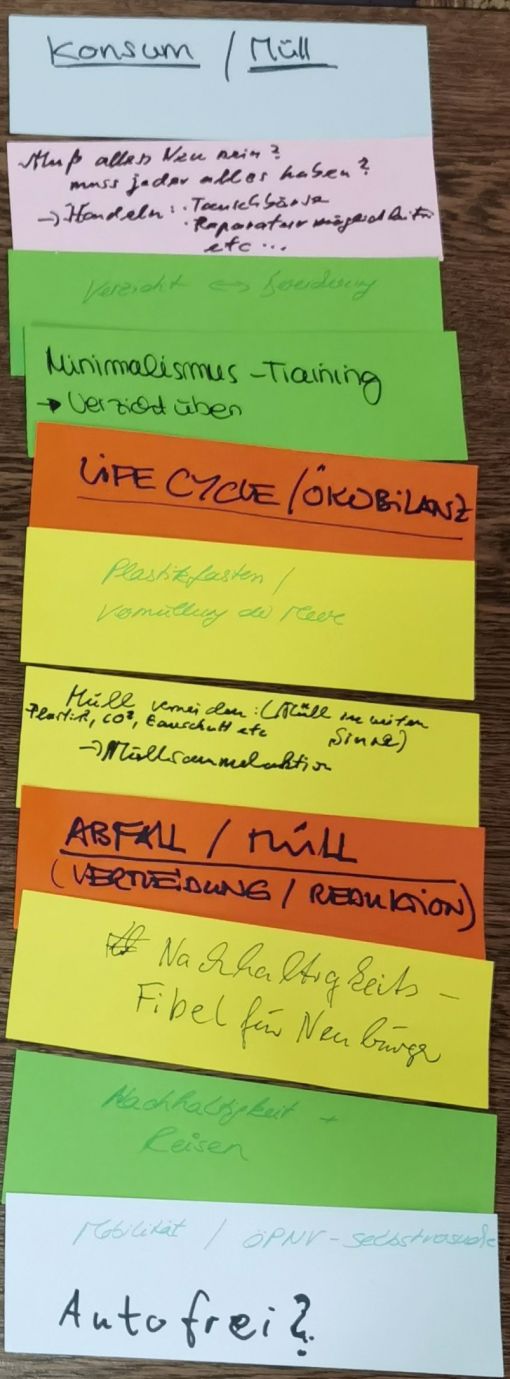 Konsum / Müll
Muß alles Neu sein?
muss jeder alles haben?
→ Handeln: · Tauschbörse
· Reparaturmöglichkeiten
etc...
Verzicht ⇔
Minimalismus-Training
→ Verzicht üben
LIFE CYCLE / ÖKOBILANZ
Plastikfasten /
Vermüllung der Meere
Müll vermeiden: (Müll im weiten
Plastik, CO², etc Sinne)
→ Müllsammelaktion
ABFALL / MÜLL
(VERMEIDUNG / REDUKTION)
Nachhaltigkeits-
Fibel für Neubürger
Nachhaltigkeit +
Reisen
Mobilität / ÖPNV - Selbstversuche
Autofrei?